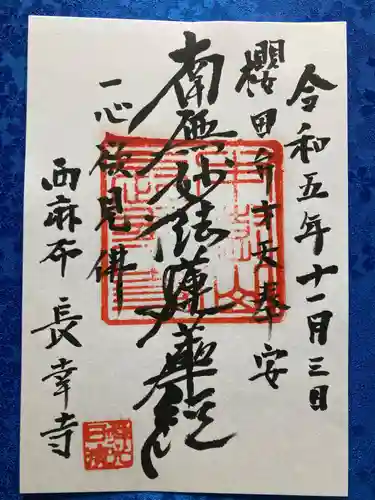 令和五年十一月三日
櫻田弁才天奉安
南無妙法蓮華経
一心欲見佛
西麻布長幸寺